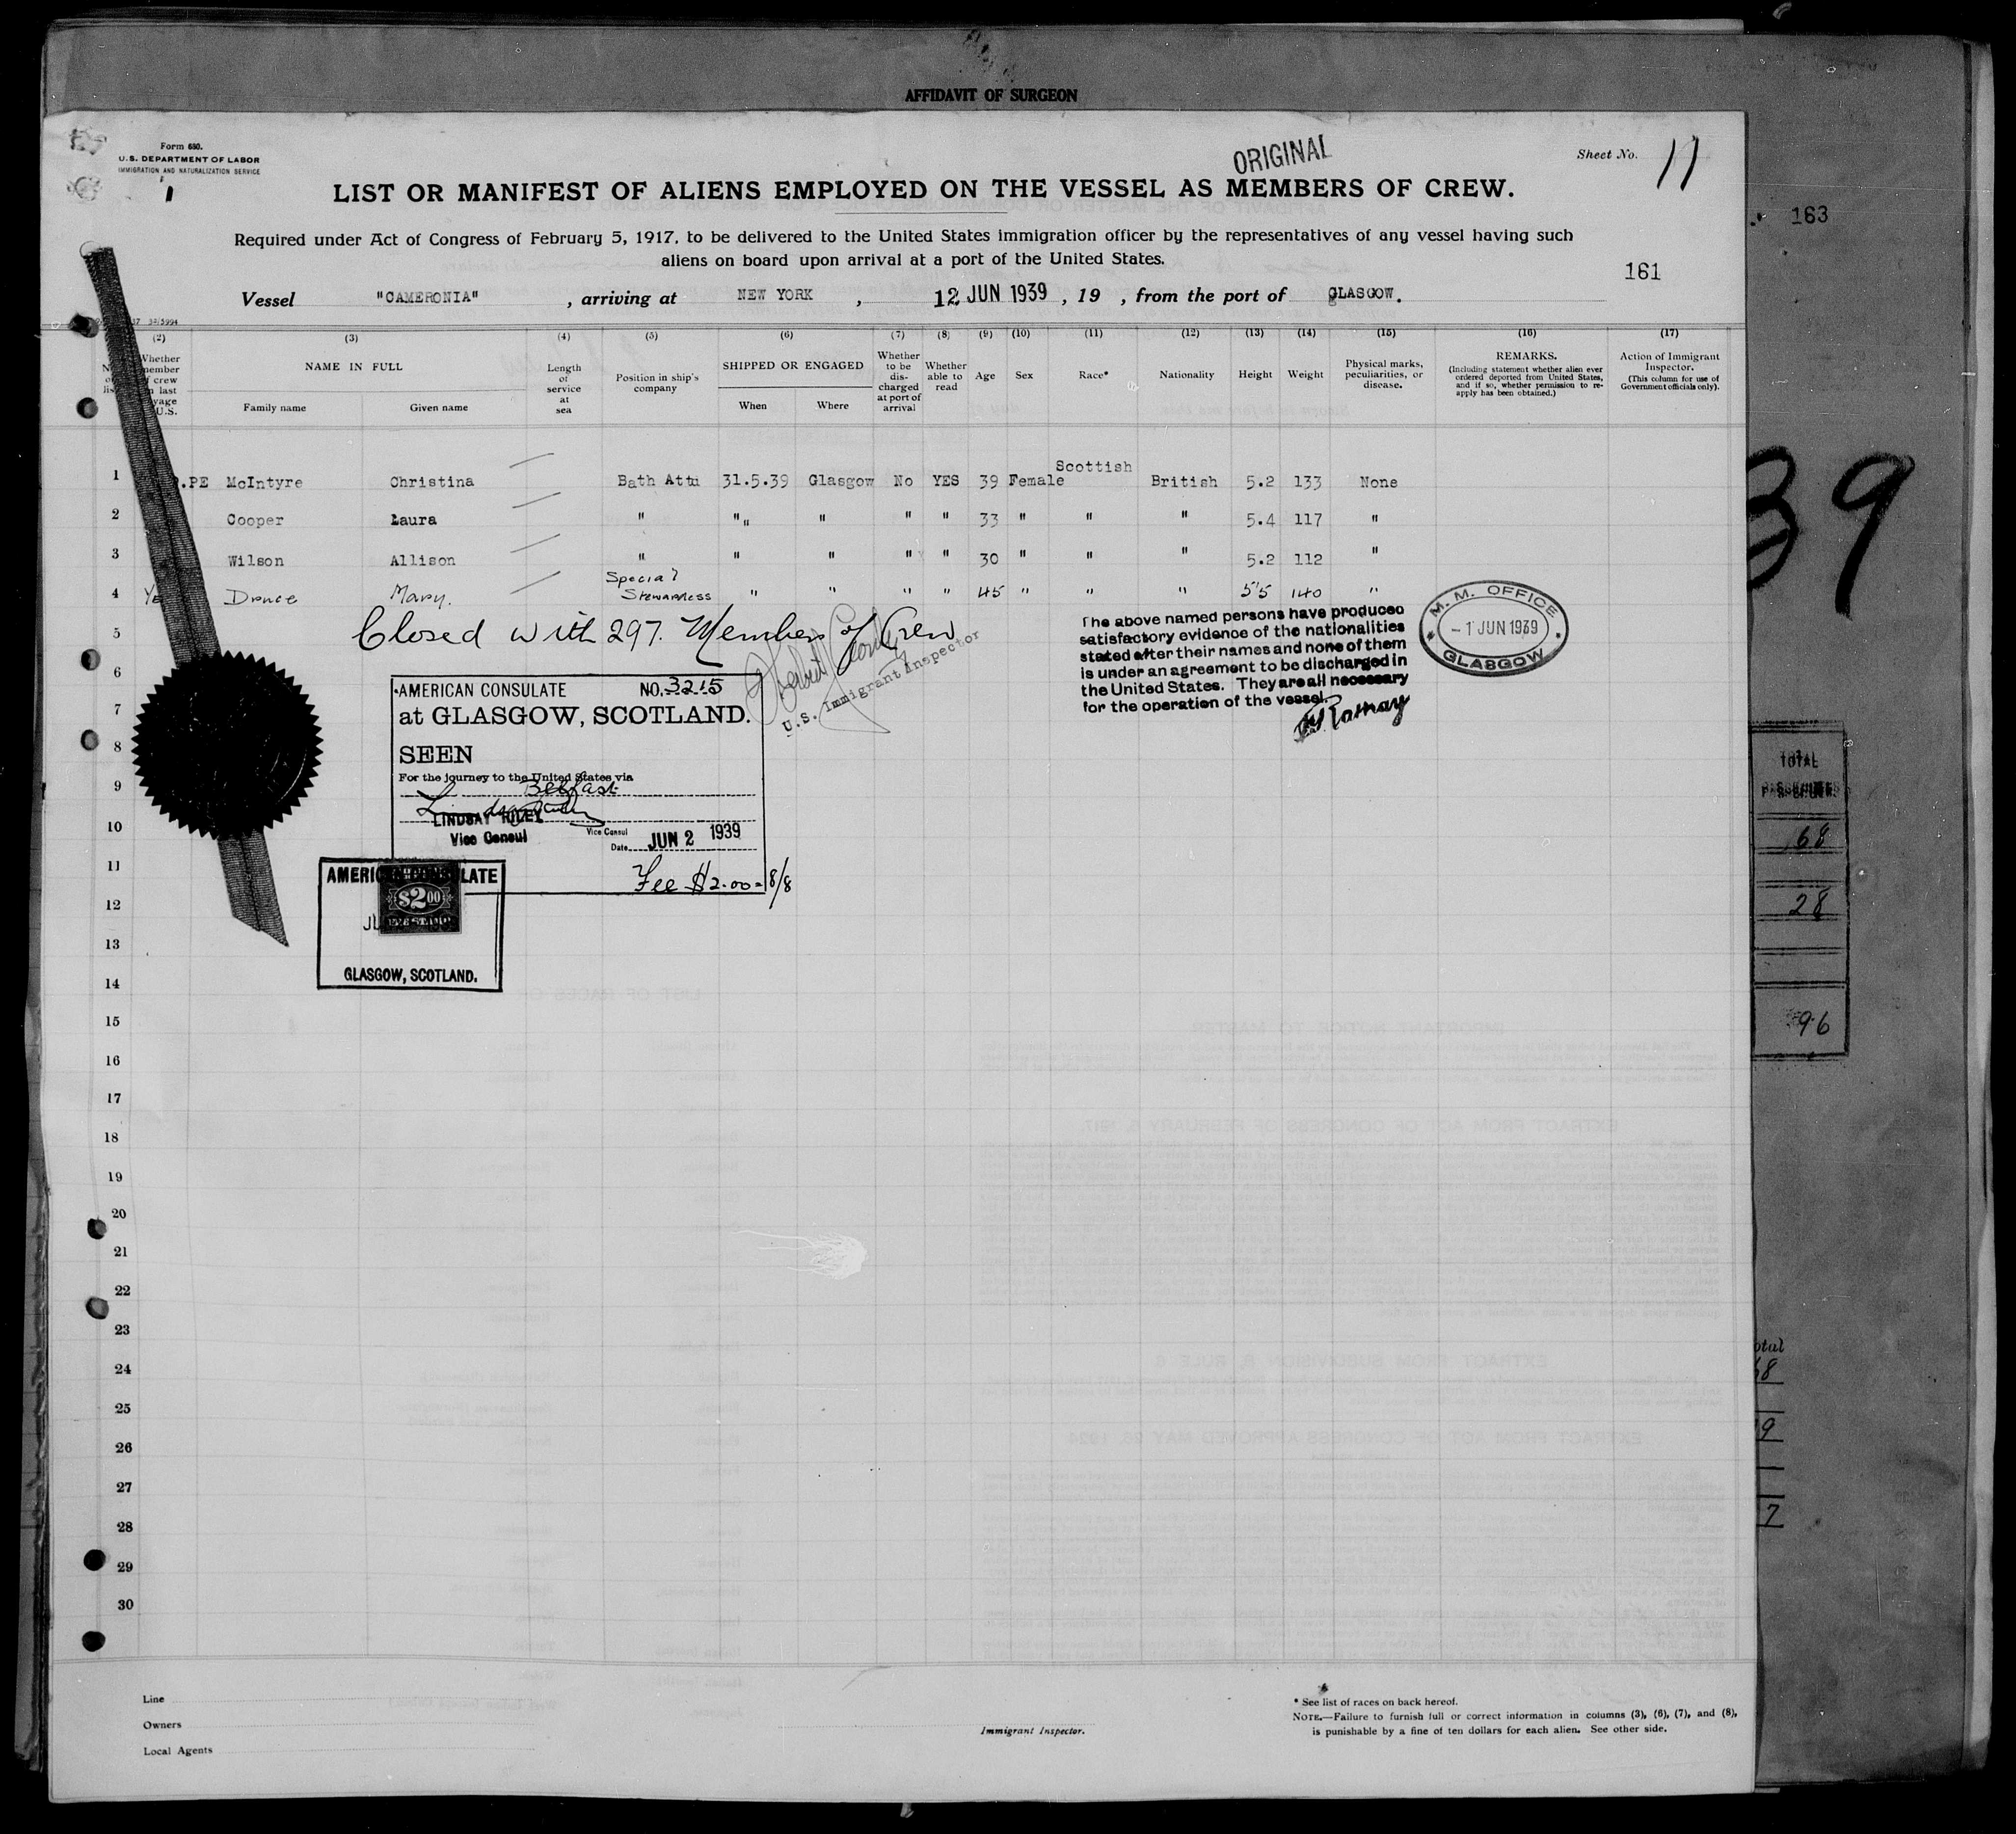 AFFIDAVIT OF SURGEON
Form 680.
U.S. DEPARTMENT OF LABOR
IMMIGRATION AND NATURALIZATION SERVICE
ORIGINAL
Sheet No. 11
LIST OR MANIFEST OF ALIENS EMPLOYED ON THE VESSEL AS MEMBERS OF CREW.
Required under Act of Congress of February 5, 1917, to be delivered to the United States immigration officer by the representatives of any vessel having such
aliens on board upon arrival at a port of the United States.
163
161
Vessel "CAMERONIA" , arriving at NEW YORK , 12 JUN 1939 , 19 , from the port of GLASGOW.
(2) (3) (4) (5) (6) (7) (8) (9) (10) (11) (12) (13) (14) (15) (16) (17)
Whether member of crew on last voyage U.S.
NAME IN FULL
Family name
Given name
Length of service at sea
Position in ship's company
SHIPPED OR ENGAGED
When
Where
Whether to be discharged at port of arrival
Whether able to read
Age
Sex
Race*
Nationality
Height
Weight
Physical marks, peculiarities, or disease.
REMARKS.
(Including statement whether alien ever ordered deported from United States, and if so, whether permission to reapply has been obtained.)
Action of Immigrant Inspector.
(This column for use of Government officials only).
1 .PE McIntyre Christina Bath Attn 31.5.39 Glasgow No YES 39 Female Scottish British 5.2 133 None
2 Cooper Laura " " " " " 33 " " " 5.4 117 "
3 Wilson Allison " " " " " 30 " " " 5.2 112 "
4 Druce Mary. Special Stewardess " " " " 45 " " " 5'5 140 "
5 Closed with 297. Members of Crew
U.S. Immigrant Inspector
The above named persons have produced
satisfactory evidence of the nationalities
stated after their names and none of them
is under an agreement to be discharged in
the United States. They are all necessary
for the operation of the vessel.
M. M. OFFICE
- 1 JUN 1939
GLASGOW
6
7
8
9
10
11
12
13
14
15
16
17
18
19
20
21
22
23
24
25
26
27
28
29
30
AMERICAN CONSULATE NO. 3215
at GLASGOW, SCOTLAND.
SEEN
For the journey to the United States via
Belfast
LINDSAY RILEY
Vice Consul
Vice Consul
Date JUN 2 1939
Fee $2.00 = 8/8
AMERICAN CONSULATE
$2.00
GLASGOW, SCOTLAND.
39
TOTAL
68
28
96
Line
Owners
Local Agents
Immigrant Inspector.
* See list of races on back hereof.
NOTE.—Failure to furnish full or correct information in columns (3), (6), (7), and (8),
is punishable by a fine of ten dollars for each alien. See other side.